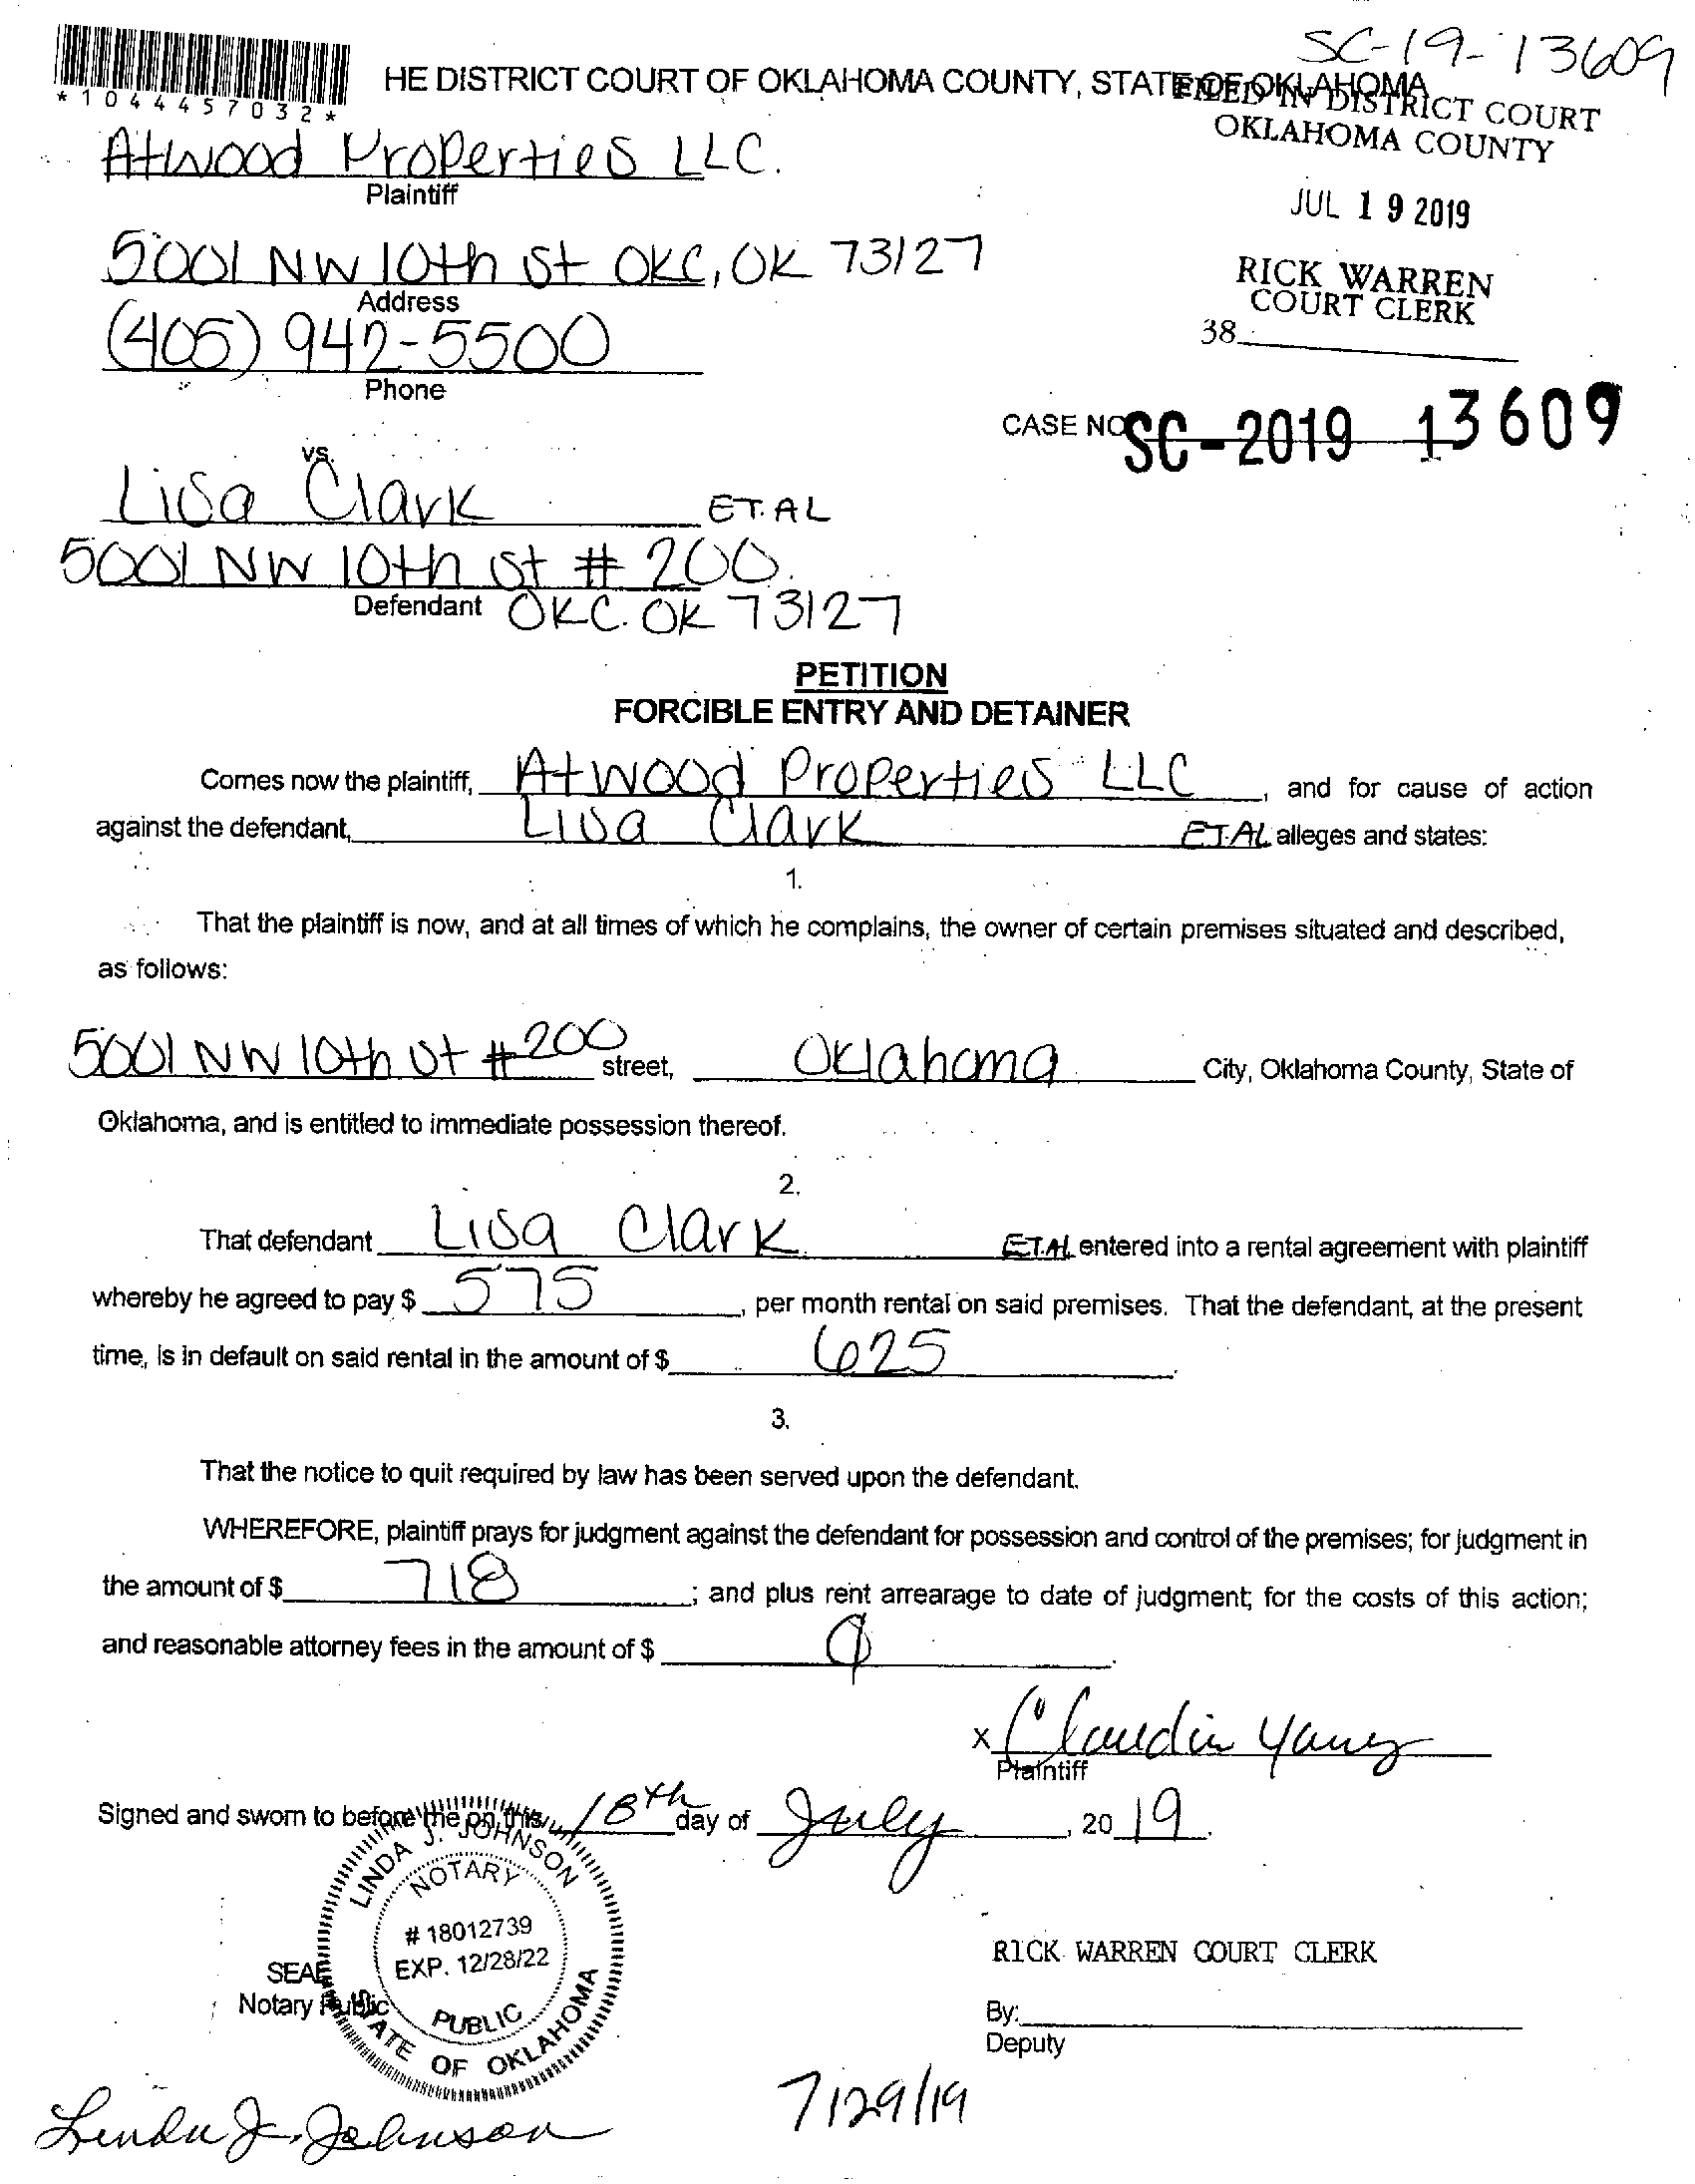 SC-19-13609
HE DISTRICT COURT OF OKLAHOMA COUNTY, STATE OF OKLAHOMA
*1044457032*
FILED IN DISTRICT COURT
OKLAHOMA COUNTY
Atwood Properties LLC.
Plaintiff
JUL 19 2019
5001 NW 10th St OKC, OK 73127
Address
RICK WARREN
COURT CLERK
38
(405) 942-5500
Phone
CASE NO SC-2019 13609
vs.
Lisa Clark ET.AL
5001 NW 10th St # 200.
Defendant OKC. OK 73127
PETITION
FORCIBLE ENTRY AND DETAINER
Comes now the plaintiff, Atwood Properties LLC, and for cause of action
against the defendant, Lisa Clark ET.AL alleges and states:
1.
That the plaintiff is now, and at all times of which he complains, the owner of certain premises situated and described,
as follows:
5001 NW 10th St #200 street, Oklahoma City, Oklahoma County, State of
Oklahoma, and is entitled to immediate possession thereof.
2.
That defendant Lisa Clark ET.AL entered into a rental agreement with plaintiff
whereby he agreed to pay $ 575, per month rental on said premises. That the defendant, at the present
time, is in default on said rental in the amount of $ 625.
3.
That the notice to quit required by law has been served upon the defendant.
WHEREFORE, plaintiff prays for judgment against the defendant for possession and control of the premises; for judgment in
the amount of $ 718; and plus rent arrearage to date of judgment; for the costs of this action;
and reasonable attorney fees in the amount of $ 0.
x Claudia Yanez
Plaintiff
Signed and sworn to before me on this 18th day of July, 2019.
LINDA J. JOHNSON
NOTARY
# 18012739
EXP. 12/28/22
PUBLIC
STATE OF OKLAHOMA
SEAL
Notary Public
RICK WARREN COURT CLERK
By:
Deputy
7/29/19
Linda J. Johnson